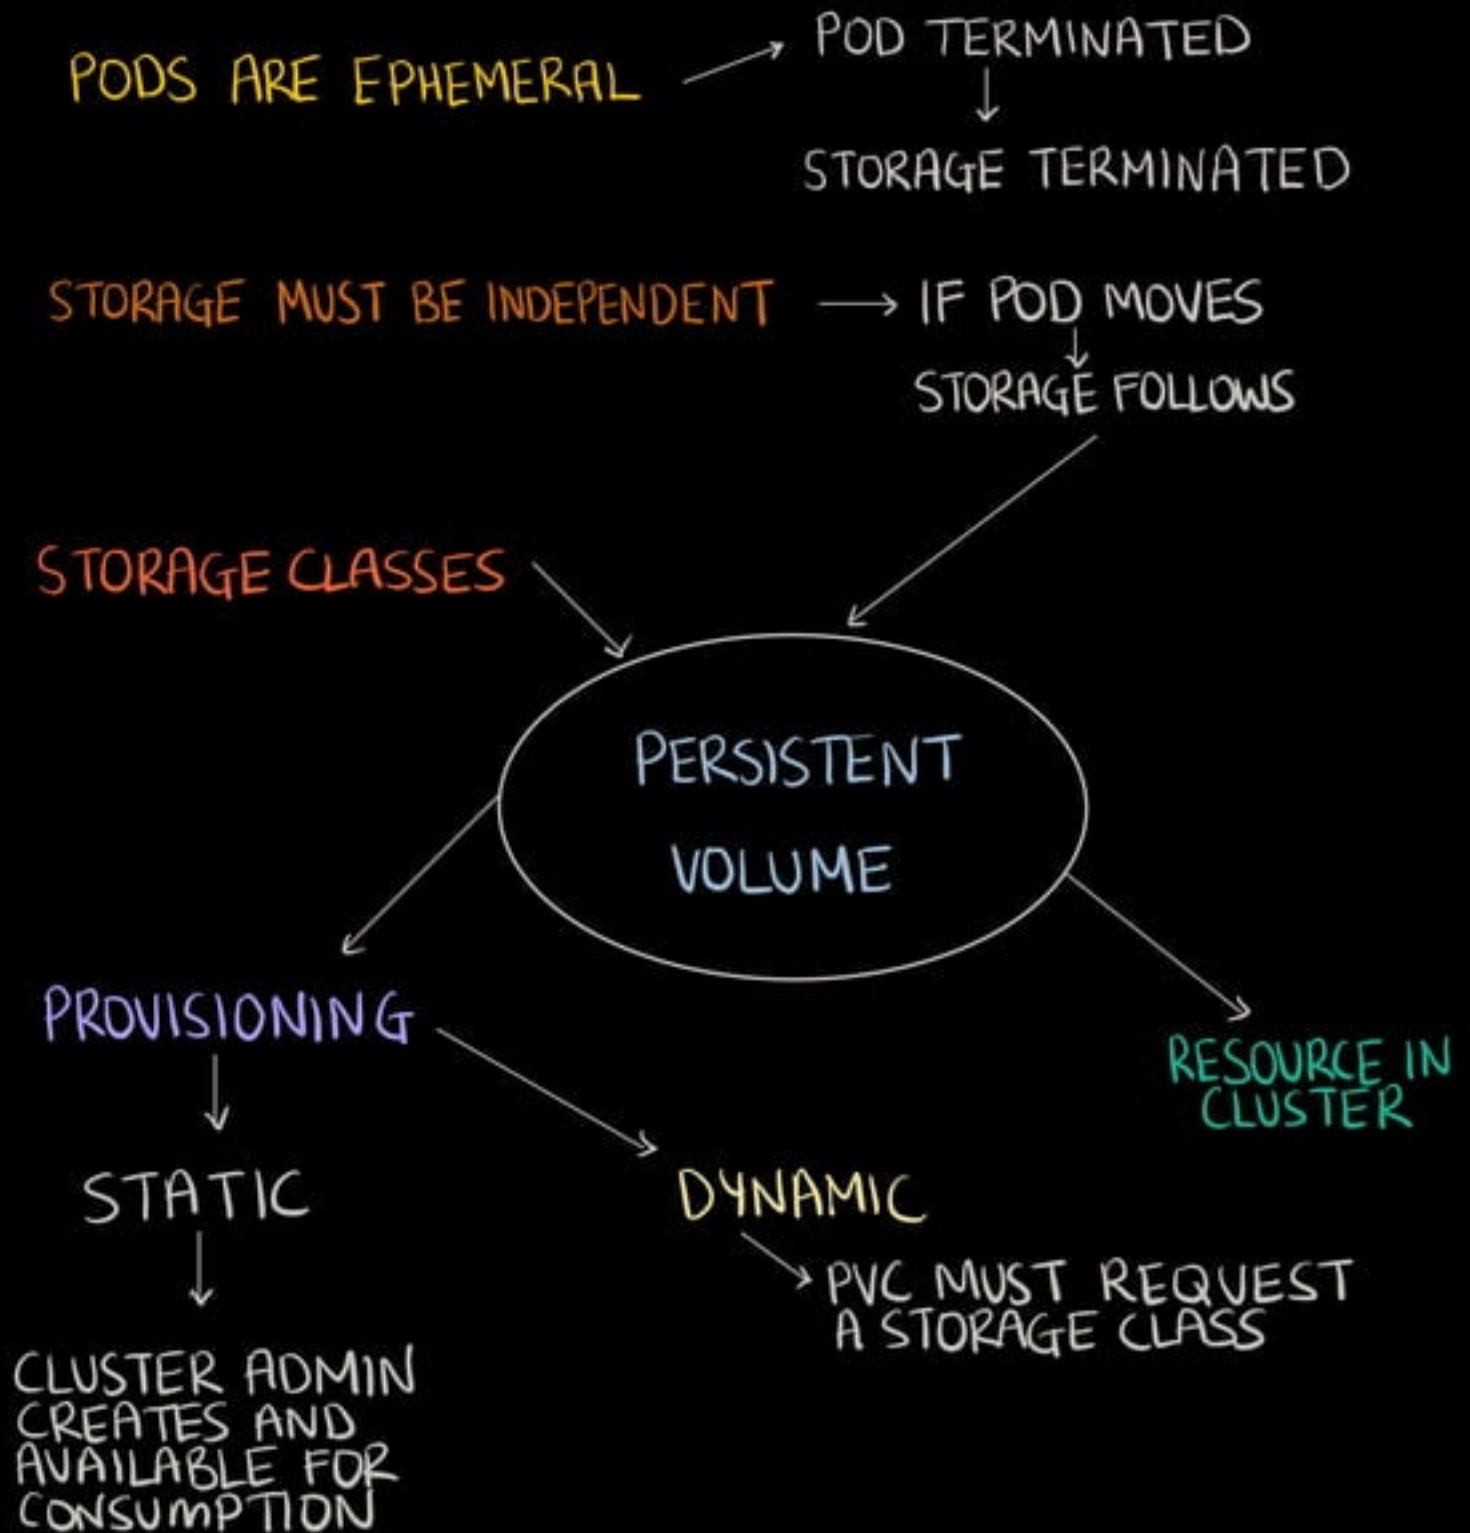 PODS ARE EPHEMERAL
POD TERMINATED
STORAGE TERMINATED
STORAGE MUST BE INDEPENDENT
IF POD MOVES
STORAGE FOLLOWS
STORAGE CLASSES
PERSISTENT
VOLUME
PROVISIONING
RESOURCE IN
CLUSTER
STATIC
DYNAMIC
PVC MUST REQUEST
A STORAGE CLASS
CLUSTER ADMIN
CREATES AND
AVAILABLE FOR
CONSUMPTION